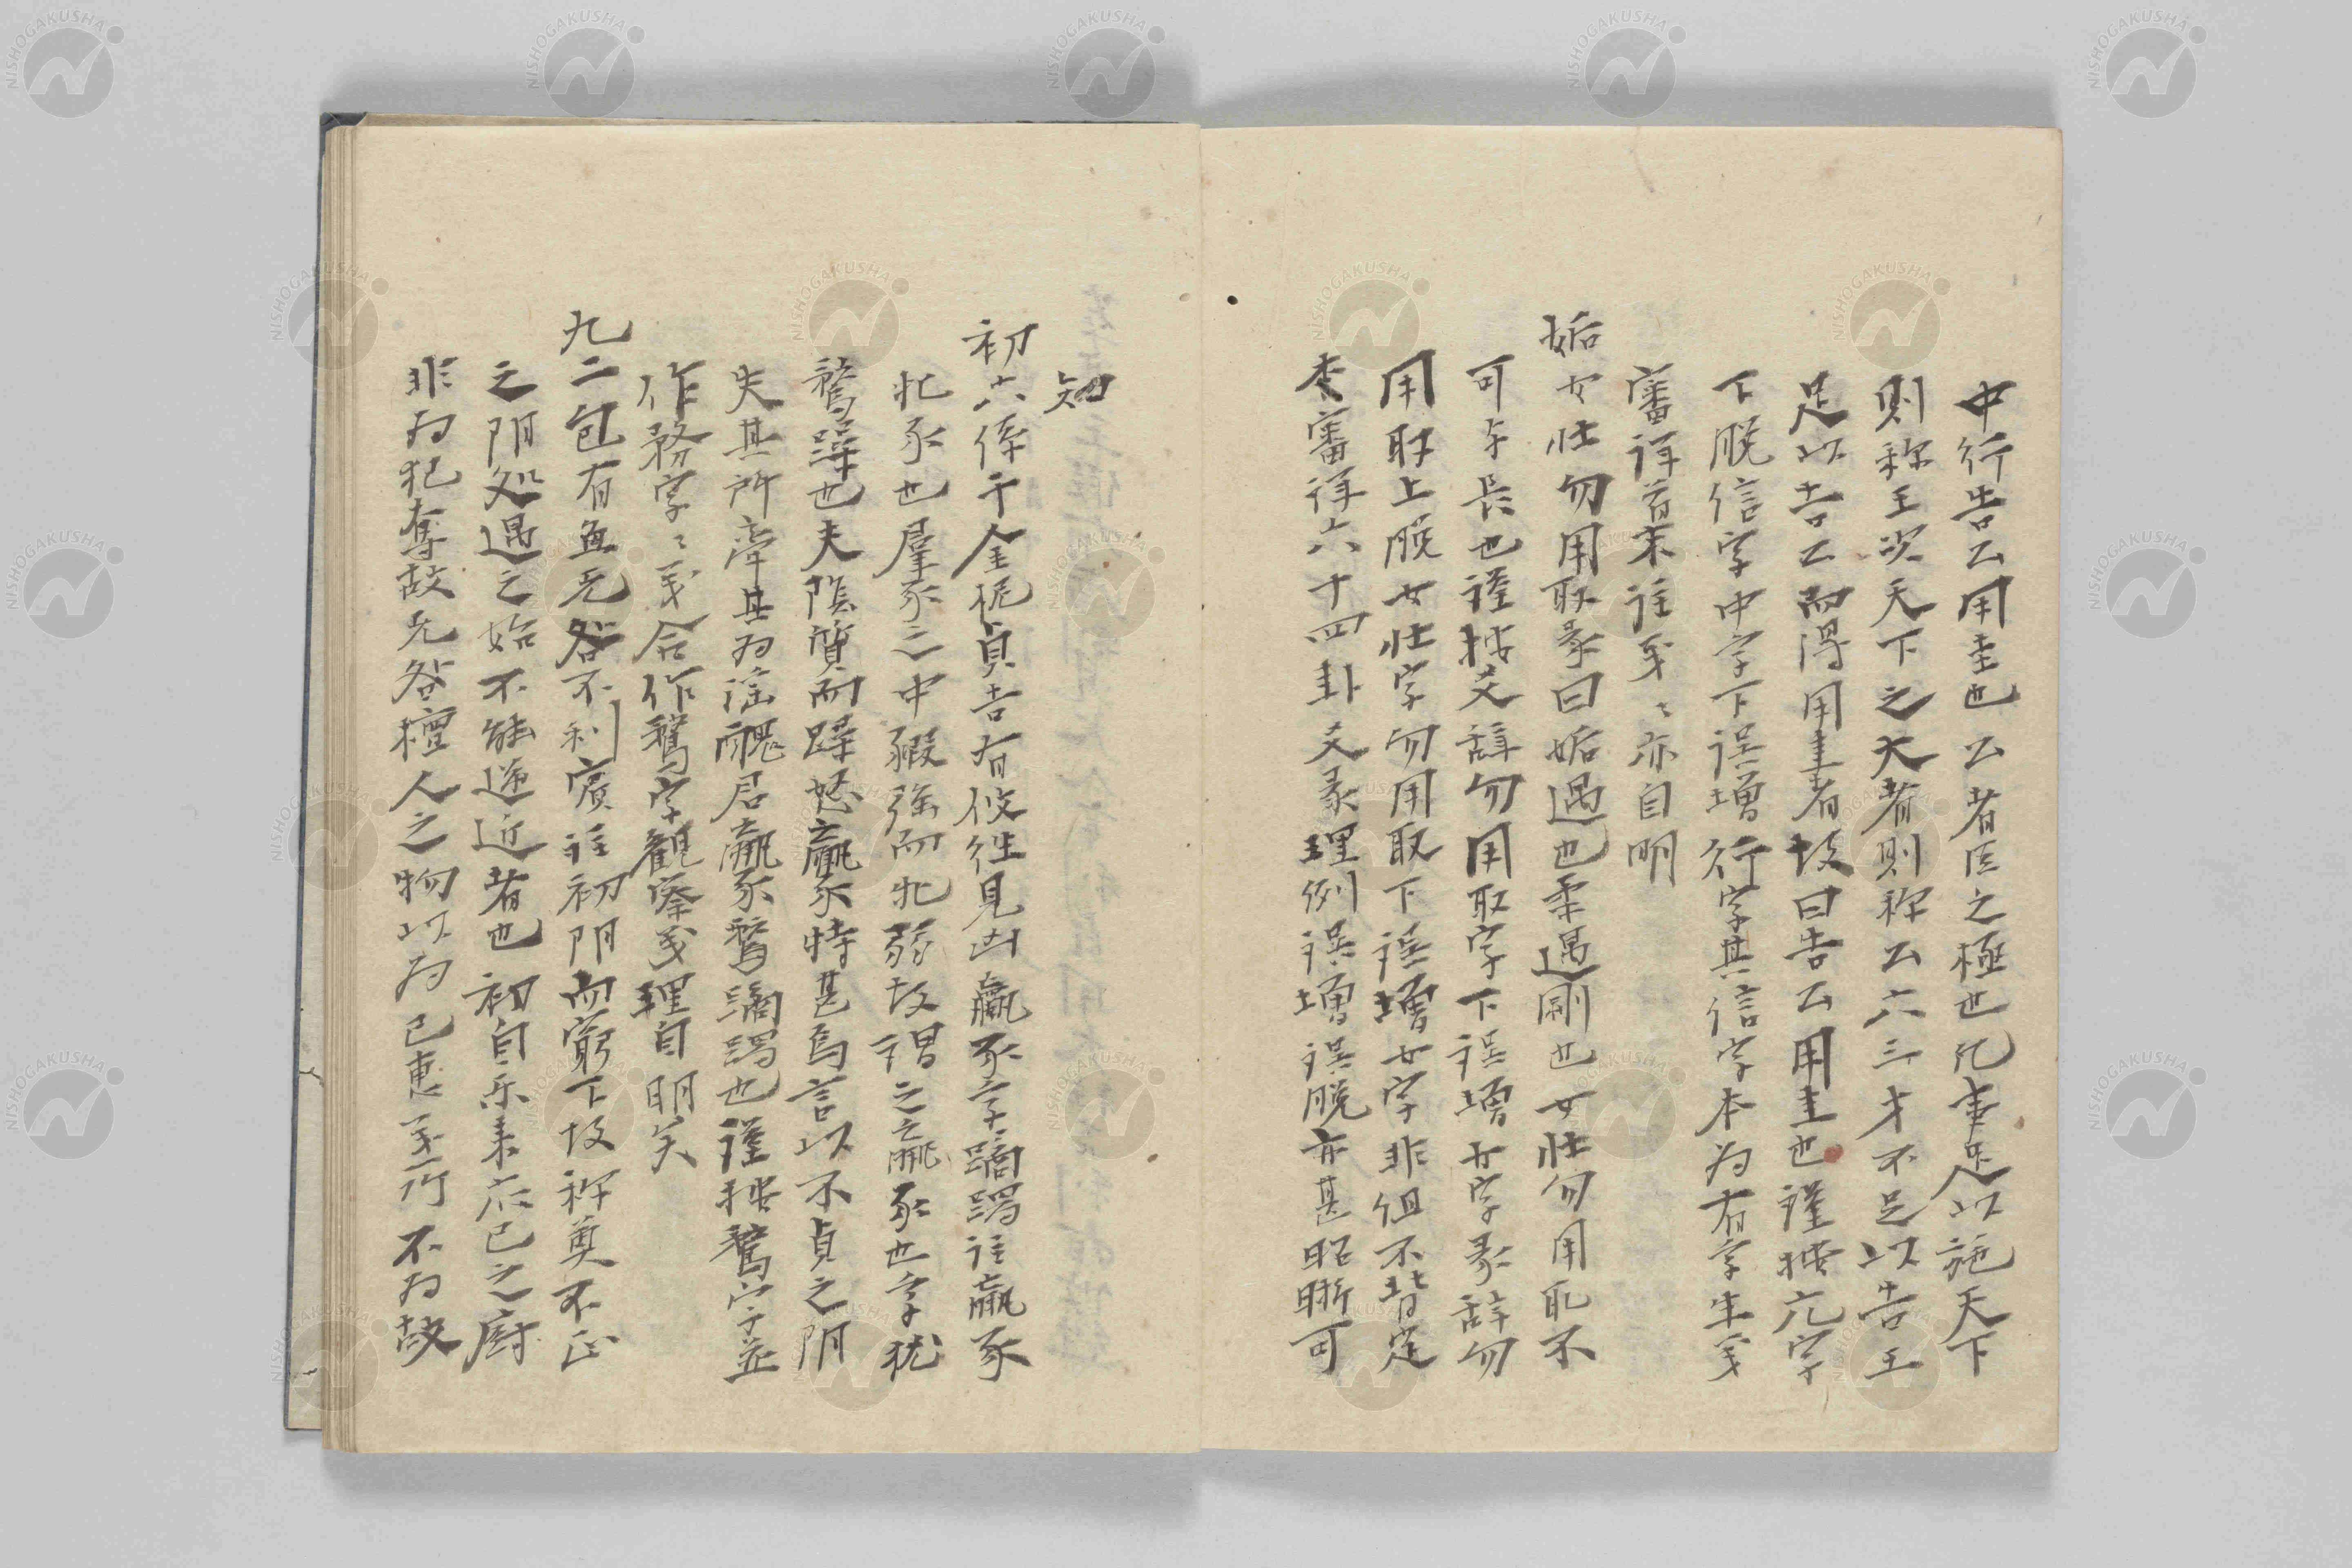 中行告公用圭也公者臣之極也凡事足以施天下
則称王次天下之大者則称公六三才不足以告王
足以告公而得用圭者故曰告公用圭也謹按亢字
下脱信字中字下誤増行字其信字本为有字生我
審詳首末注義〻亦自明
姤女壮勿用取彖曰姤遇也柔遇剛也女壮勿用取不
可与長也謹按爻辞勿用取字下誤増女字彖辞勿
用取上脱女壮字勿用取下誤増女字非但不背定
本審詳六十四卦爻彖理例誤増誤脱亦甚昭晰可
知
初六係于金柅貞吉有攸往見凶羸豕孚蹢躅注羸豕
牝豕也羣豕之中豭強而牝弱故謂之羸豕也孚犹
鶩躁也夫陰質而躁恣羸豕特甚焉言以不貞之阴
失其所牽其为淫醜若羸豕鶩蹢躅也謹按鶩字並
作務字〻義合作鶩字観察義理自明矣
九二包有魚无咎不利賓注初阴而窮下故称魚不正
之阴処遇之始不能逆近者也初自乐来応己之厨
非为犯奪故无咎擅人之物以为己惠義所不为故